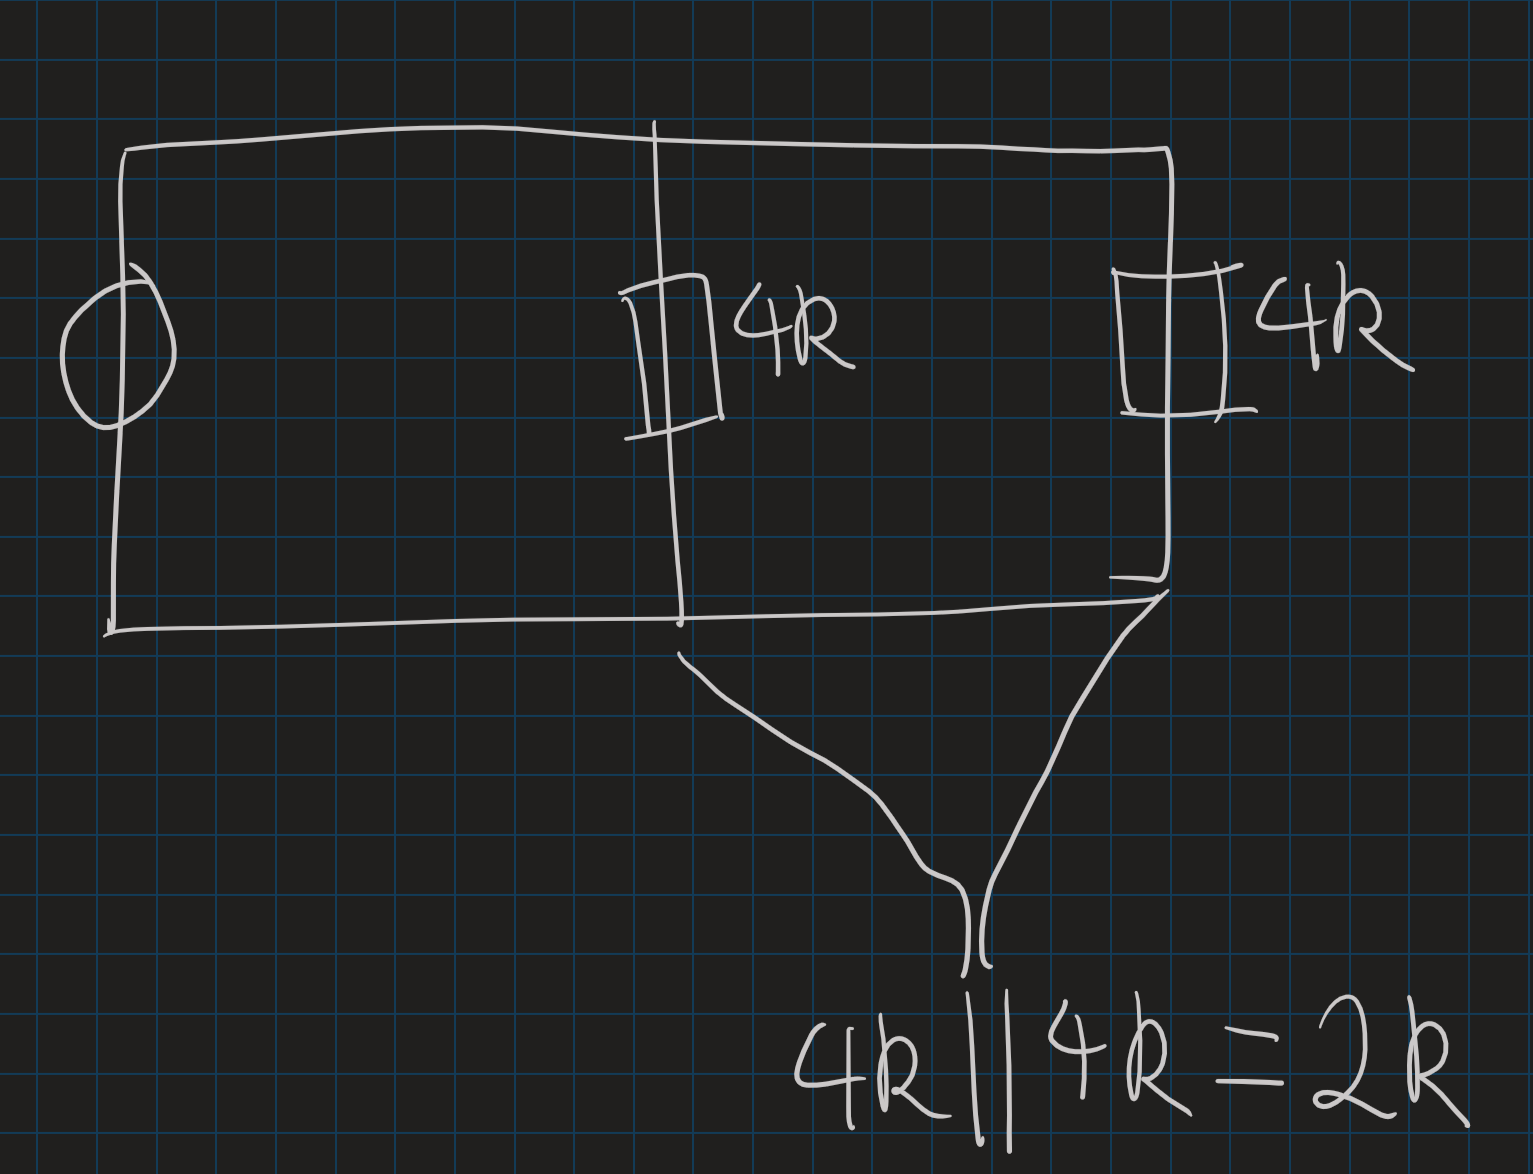 4R 4R
4R || 4R = 2R